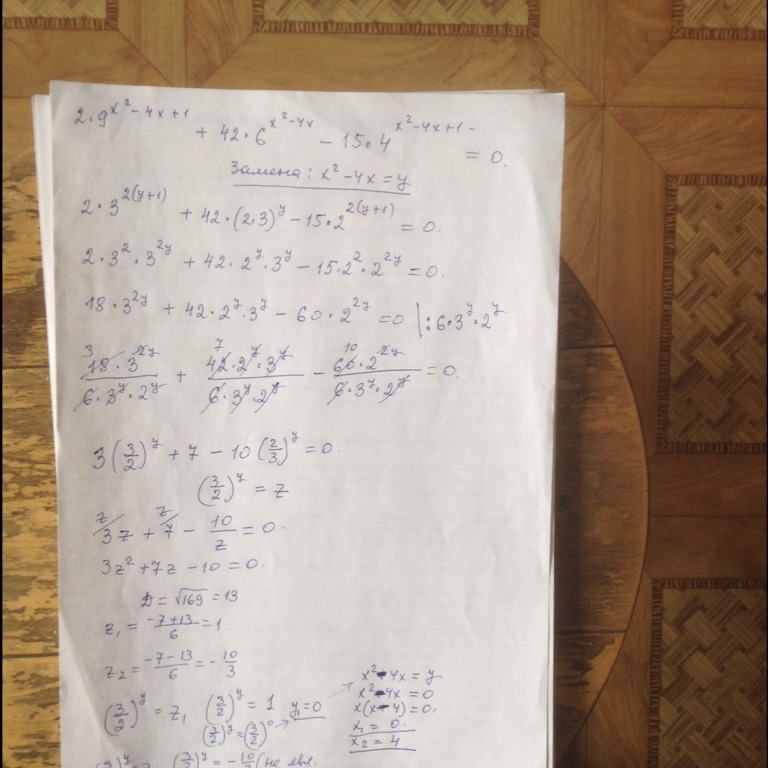 2·9^{x²-4x+1} + 42·6^{x²-4x} - 15·4^{x²-4x+1} = 0.
Замена: x²-4x=y
2·3^{2(y+1)} + 42·(2·3)^y - 15·2^{2(y+1)} = 0.
2·3²·3^{2y} + 42·2^y·3^y - 15·2²·2^{2y} = 0.
18·3^{2y} + 42·2^y·3^y - 60·2^{2y} = 0 |:6·3^y·2^y
3 7 10
18·3^{2y}/6·3^y·2^y + 42·2^y·3^y/6·3^y·2^y - 60·2^{2y}/6·3^y·2^y = 0.
3(3/2)^y + 7 - 10(2/3)^y = 0.
(3/2)^y = z
z/ z/
3z + 7 - 10/z = 0.
3z² + 7z - 10 = 0.
D = √169 = 13
z₁ = -7+13/6 = 1
z₂ = -7-13/6 = -10/3
(3/2)^y = z₁ (3/2)^y = 1 y₁=0
(3/2)^y = (3/2)^0
x²-4x = y
x²-4x = 0
x(x-4) = 0.
x₁ = 0.
x₂ = 4
(3/2)^y (3/2)^y = -10/3 (не явл.